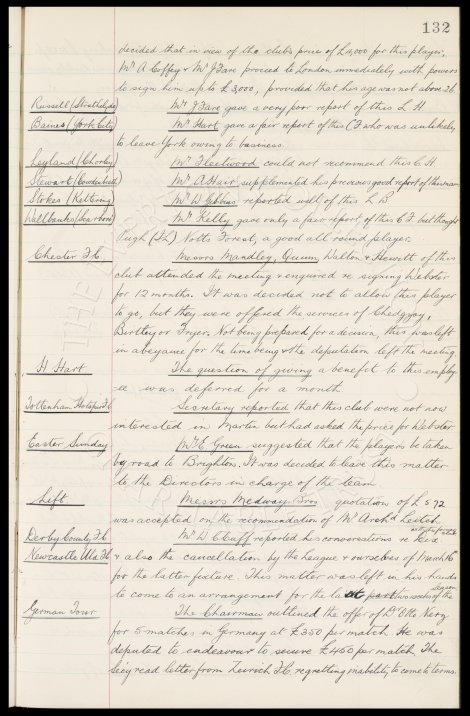 132
decided that in view of the club's price of £4,000 for this player,
Mr A Coffey & Mr J Fare proceed to London immediately with powers
to sign him up to £3,000, provided that his age was not above 26.
Russell (Strathclyde) Mr J Fare gave a very poor report of this L H.
Baines (York City) Mr Hart gave a fair report of this C F who was unlikely
to leave York owing to business.
Leyland (Chorley) Mr Fleetwood could not recommend this C H.
Stewart (Cowdenbeath) Mr A Hair supplemented his previous good report of this man
Stokes (Kettering) Mr W Gibbins reported well of this L B.
Wallbanks (Scarboro) Mr Kelly gave only a fair report of this C F. but thought
Pugh (I L) Notts Forest, a good all round player.
Chester F.C. Messrs Mandley, Quinn, Dalton & Hewitt of this
club attended the meeting & enquired re signing Webster
for 12 months. It was decided not to allow this player
to go, but they were offered the services of Chedgzoy,
Birtley or Fryer. Not being prepared for a decision, this was left
in abeyance for the time being & the deputation left the meeting
H Hart The question of giving a benefit to this employ-
ee was deferred for a month
Tottenham Hotspur F.C. Secretary reported that this club were not now
interested in Martin but had asked the price for Webster
Easter Sunday Mr E Green suggested that the players be taken
by road to Brighton. It was decided to leave this matter
to the Directors in charge of the team
Lift Messrs Medway Bros quotation of £572
was accepted on the recommendation of Mr Archd Leitch
Derby County F.C. Mr W C Cuff reported his conversations re
Newcastle Utd F.C. & also the cancellation by the League & ourselves of March 16
for the latter fixture. This matter was left in his hands
to come to an arrangement for the last part two weeks of the season
German Tour The Chairman outlined the offer of Dr Otto Nerz
for 5 matches in Germany at £350 per match. He was
deputed to endeavour to secure £450 per match. The
Sec'y read letter from Zurich F.C. regretting inability to come to terms.